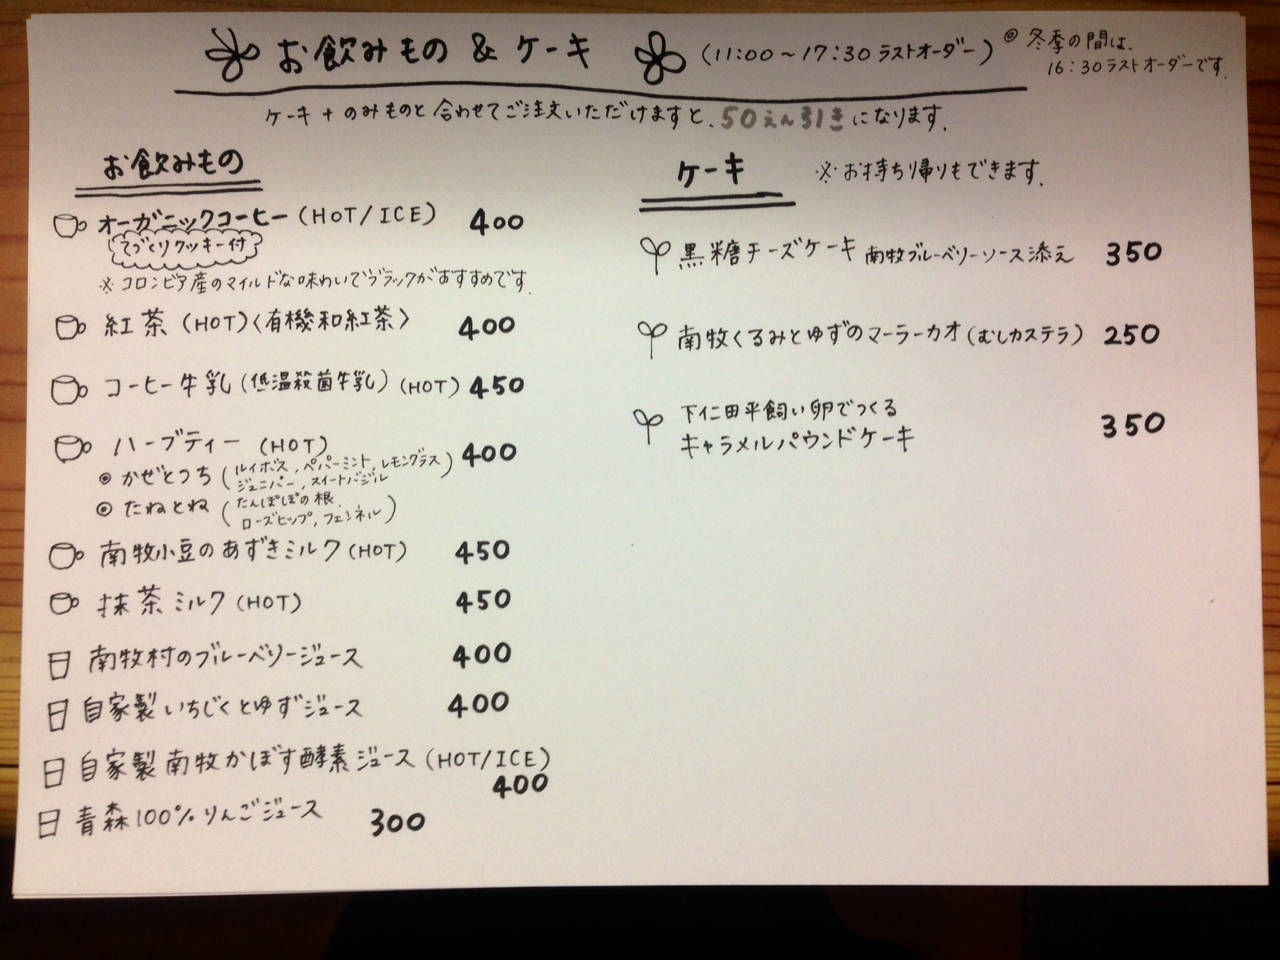 お飲みもの & ケーキ (11:00～17:30 ラストオーダー) ◎ 冬季の間は、
16:30ラストオーダーです.
ケーキ + のみものと合わせてご注文いただけますと、50えん引きになります.
お飲みもの
オーガニックコーヒー (HOT/ICE) 400
てづくりクッキー付
※コロンビア産のマイルドな味わいでブラックがおすすめです.
紅茶 (HOT)〈有機和紅茶〉 400
コーヒー牛乳 (低温殺菌牛乳) (HOT) 450
ハーブティー (HOT) 400
◎ かぜとつち (ルイボス, ペパーミント, レモングラス
ジュニパー, スイートバジル)
◎ たねとね (たんぽぽの根,
ローズヒップ, フェンネル)
南牧小豆のあずきミルク (HOT) 450
抹茶ミルク (HOT) 450
南牧村のブルーベリージュース 400
自家製いちじくとゆずジュース 400
自家製南牧かぼす酵素ジュース (HOT/ICE)
400
青森100%りんごジュース 300
ケーキ ※お持ち帰りもできます.
黒糖チーズケーキ 南牧ブルーベリーソース添え 350
南牧くるみとゆずのマーラーカオ (むしカステラ) 250
下仁田平飼い卵でつくる
キャラメルパウンドケーキ 350